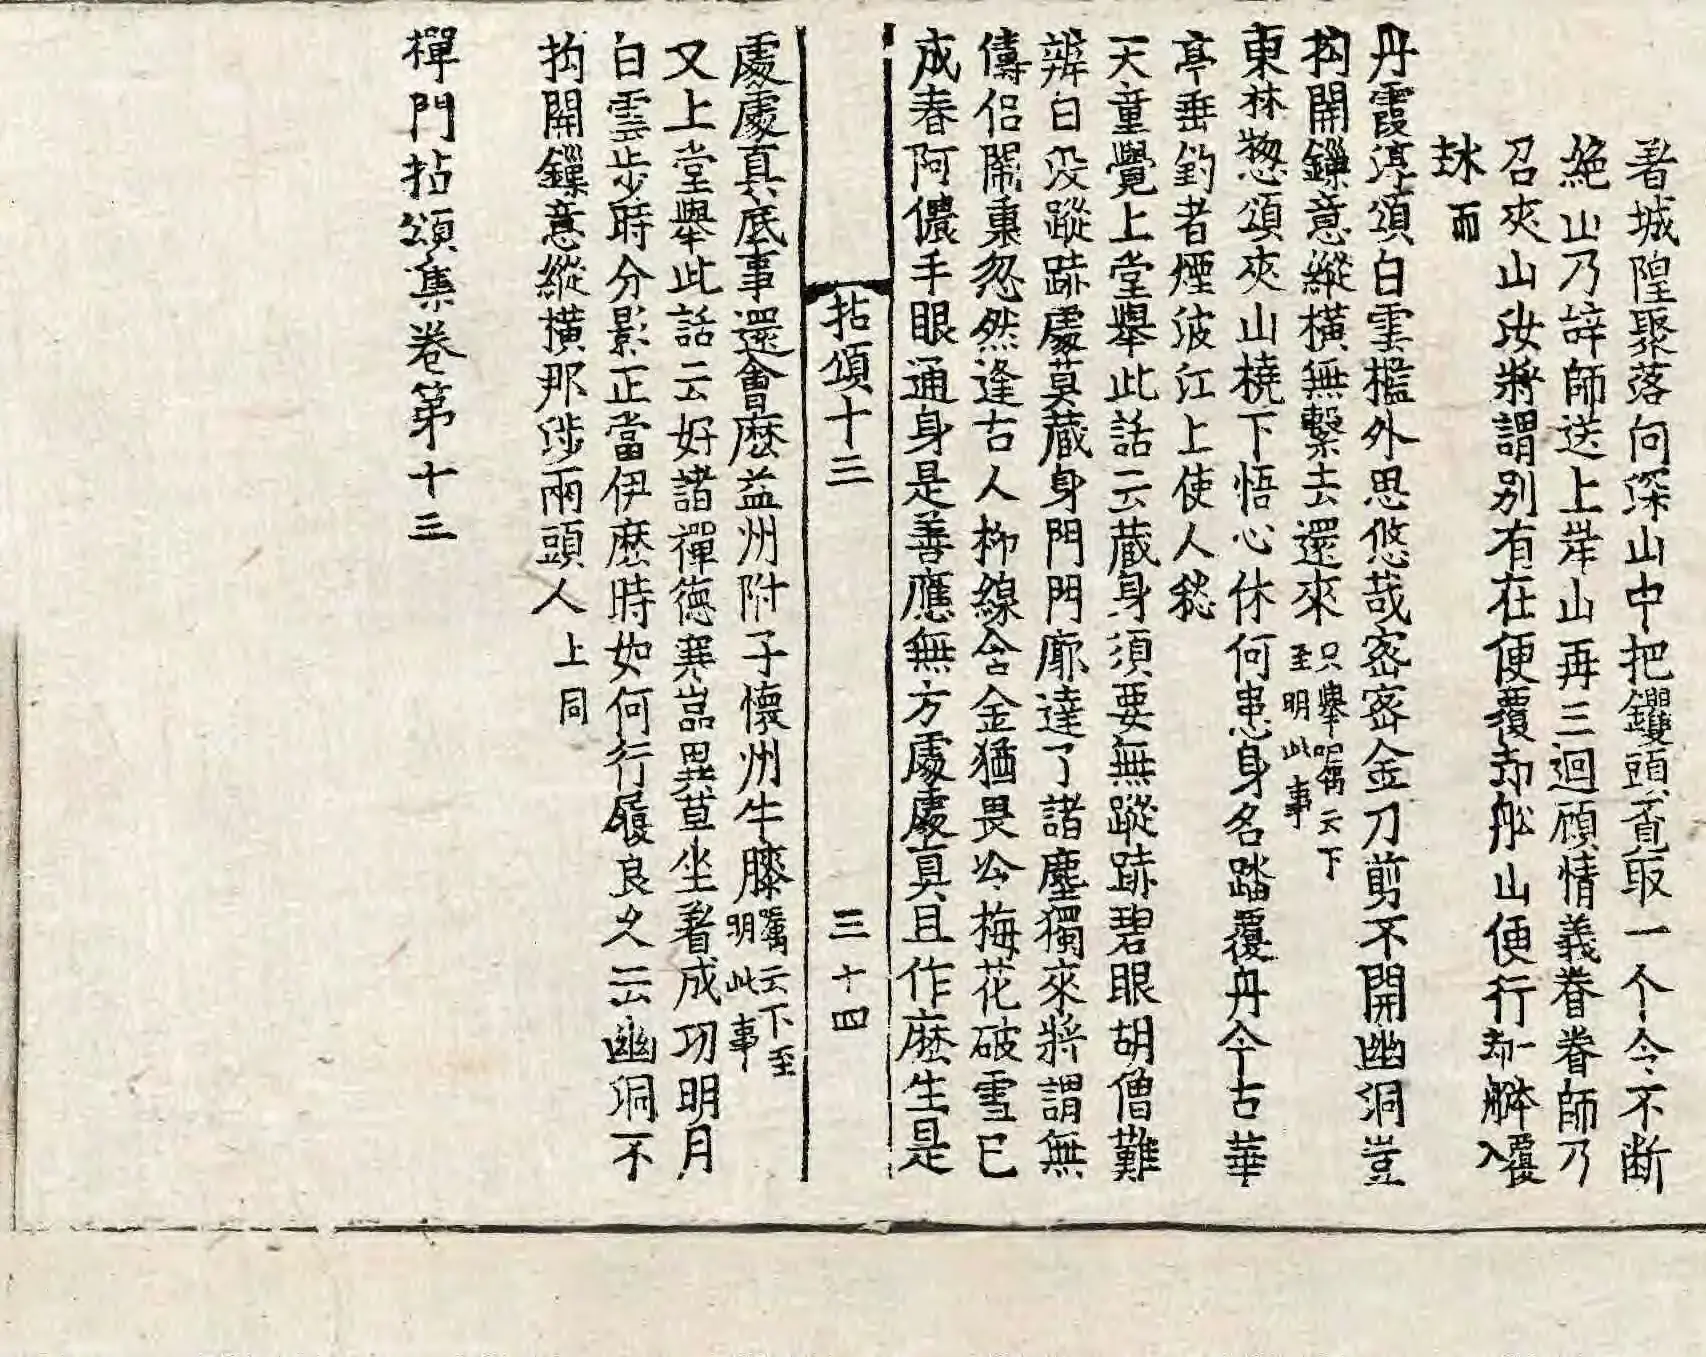 著城隍聚落向深山中把钁頭覔取一个令不断
絶山乃辞師送上岸山再三迴顧情義眷眷師乃
召夾山汝將謂别有在便覆却舡山便行一夲覆却觧入
水而
丹霞淳頌白雲檻外思悠哉密密金刀剪不開幽洞豈
拘開鏁意縱橫無繫去還來只舉囑云下至明此事
東林惣頌夾山橈下悟心休何患身名踏覆舟今古華
亭垂釣者煙波江上使人愁
天童覺上堂舉此話云蔵身須要無蹤跡碧眼胡僧難
辨白没蹤跡處莫蔵身門門廓達了諸塵獨來將謂無
儔侣閙裏忽然逢古人柳線含金猶畏冷梅花破雪已
成春阿儂手眼通身是善應無方處處真且作麽生是
拈頌十三 三十四
處處真底事還會麽益州附子懷州牛膝囑云下至明此事
又上堂舉此話云好諸禪德寒嵓異草坐著成功明月
白雲步時分影正當伊麽時如何行履良久云幽洞不
拘開鏁意縱橫那涉兩頭人上同
禪門拈頌集卷第十三